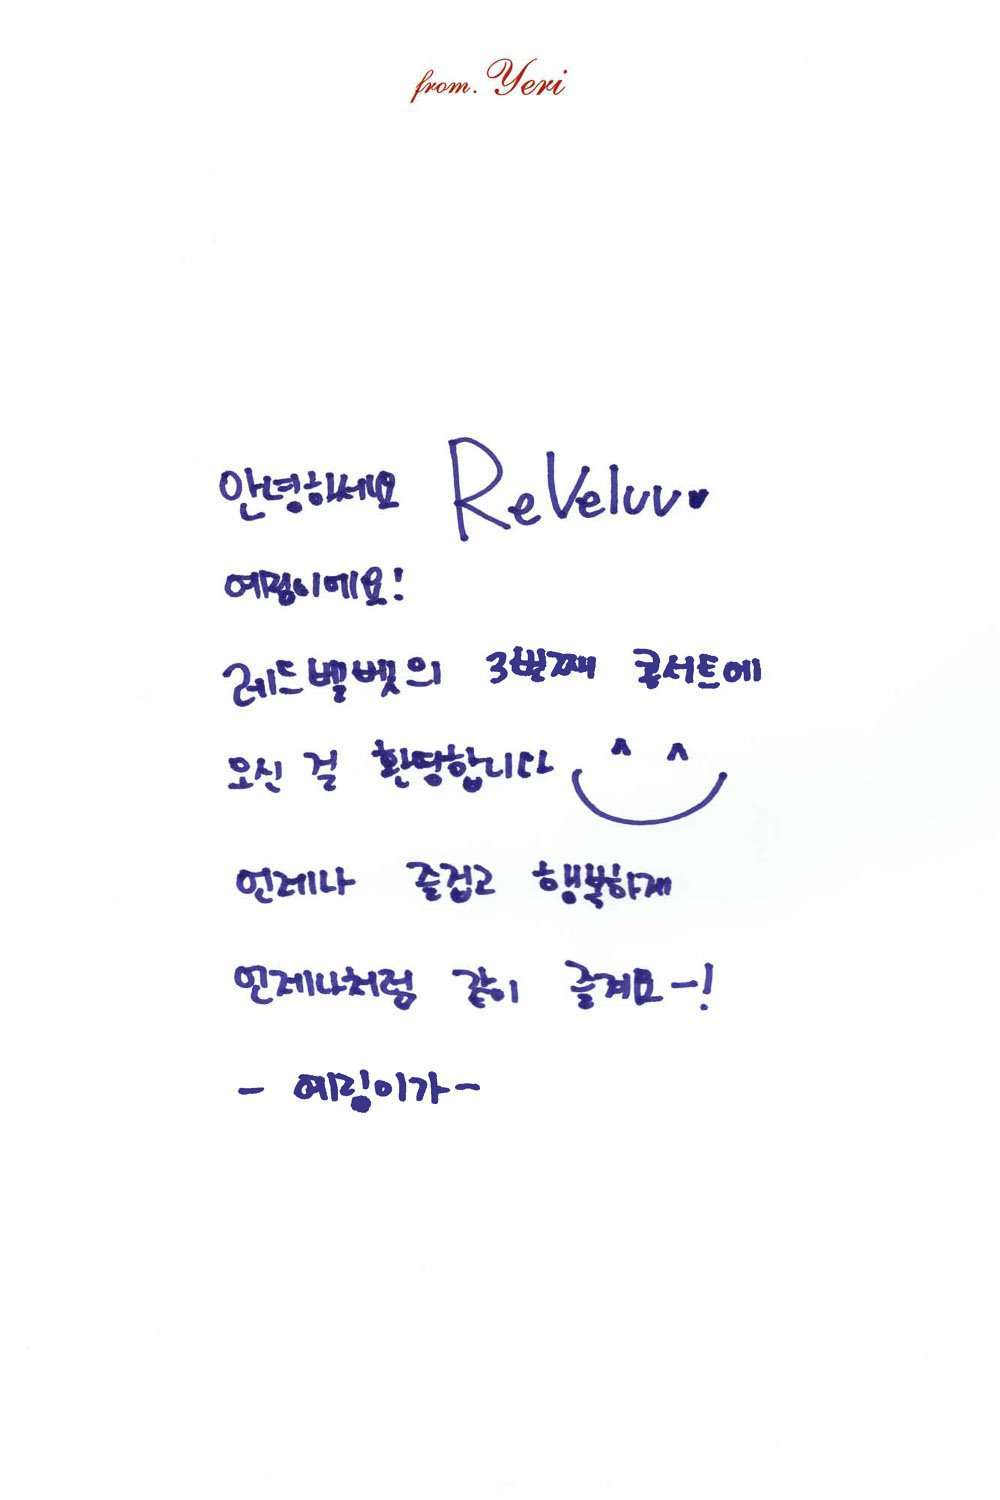 from. Yeri
안녕하세요 ReVeluv♥
예링이에요!
레드벨벳의 3번째 콘서트에
오신 걸 환영합니다 ^ ^
언제나 즐겁고 행복하게
언제나처럼 같이 즐겨요~!
- 예링이가 -